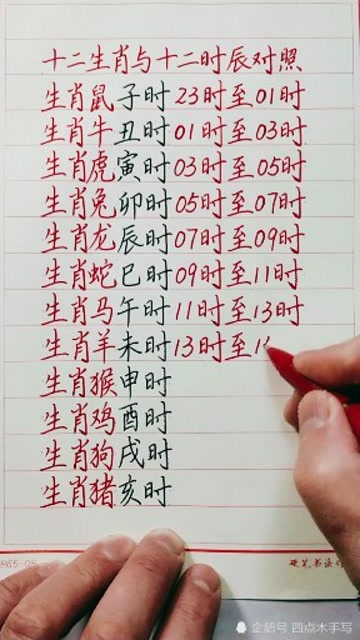 十二生肖与十二时辰对照
生肖鼠子时23时至01时
生肖牛丑时01时至03时
生肖虎寅时03时至05时
生肖兔卯时05时至07时
生肖龙辰时07时至09时
生肖蛇巳时09时至11时
生肖马午时11时至13时
生肖羊未时13时至1
生肖猴申时
生肖鸡酉时
生肖狗戌时
生肖猪亥时
865-08
企鹅号 四点木手写